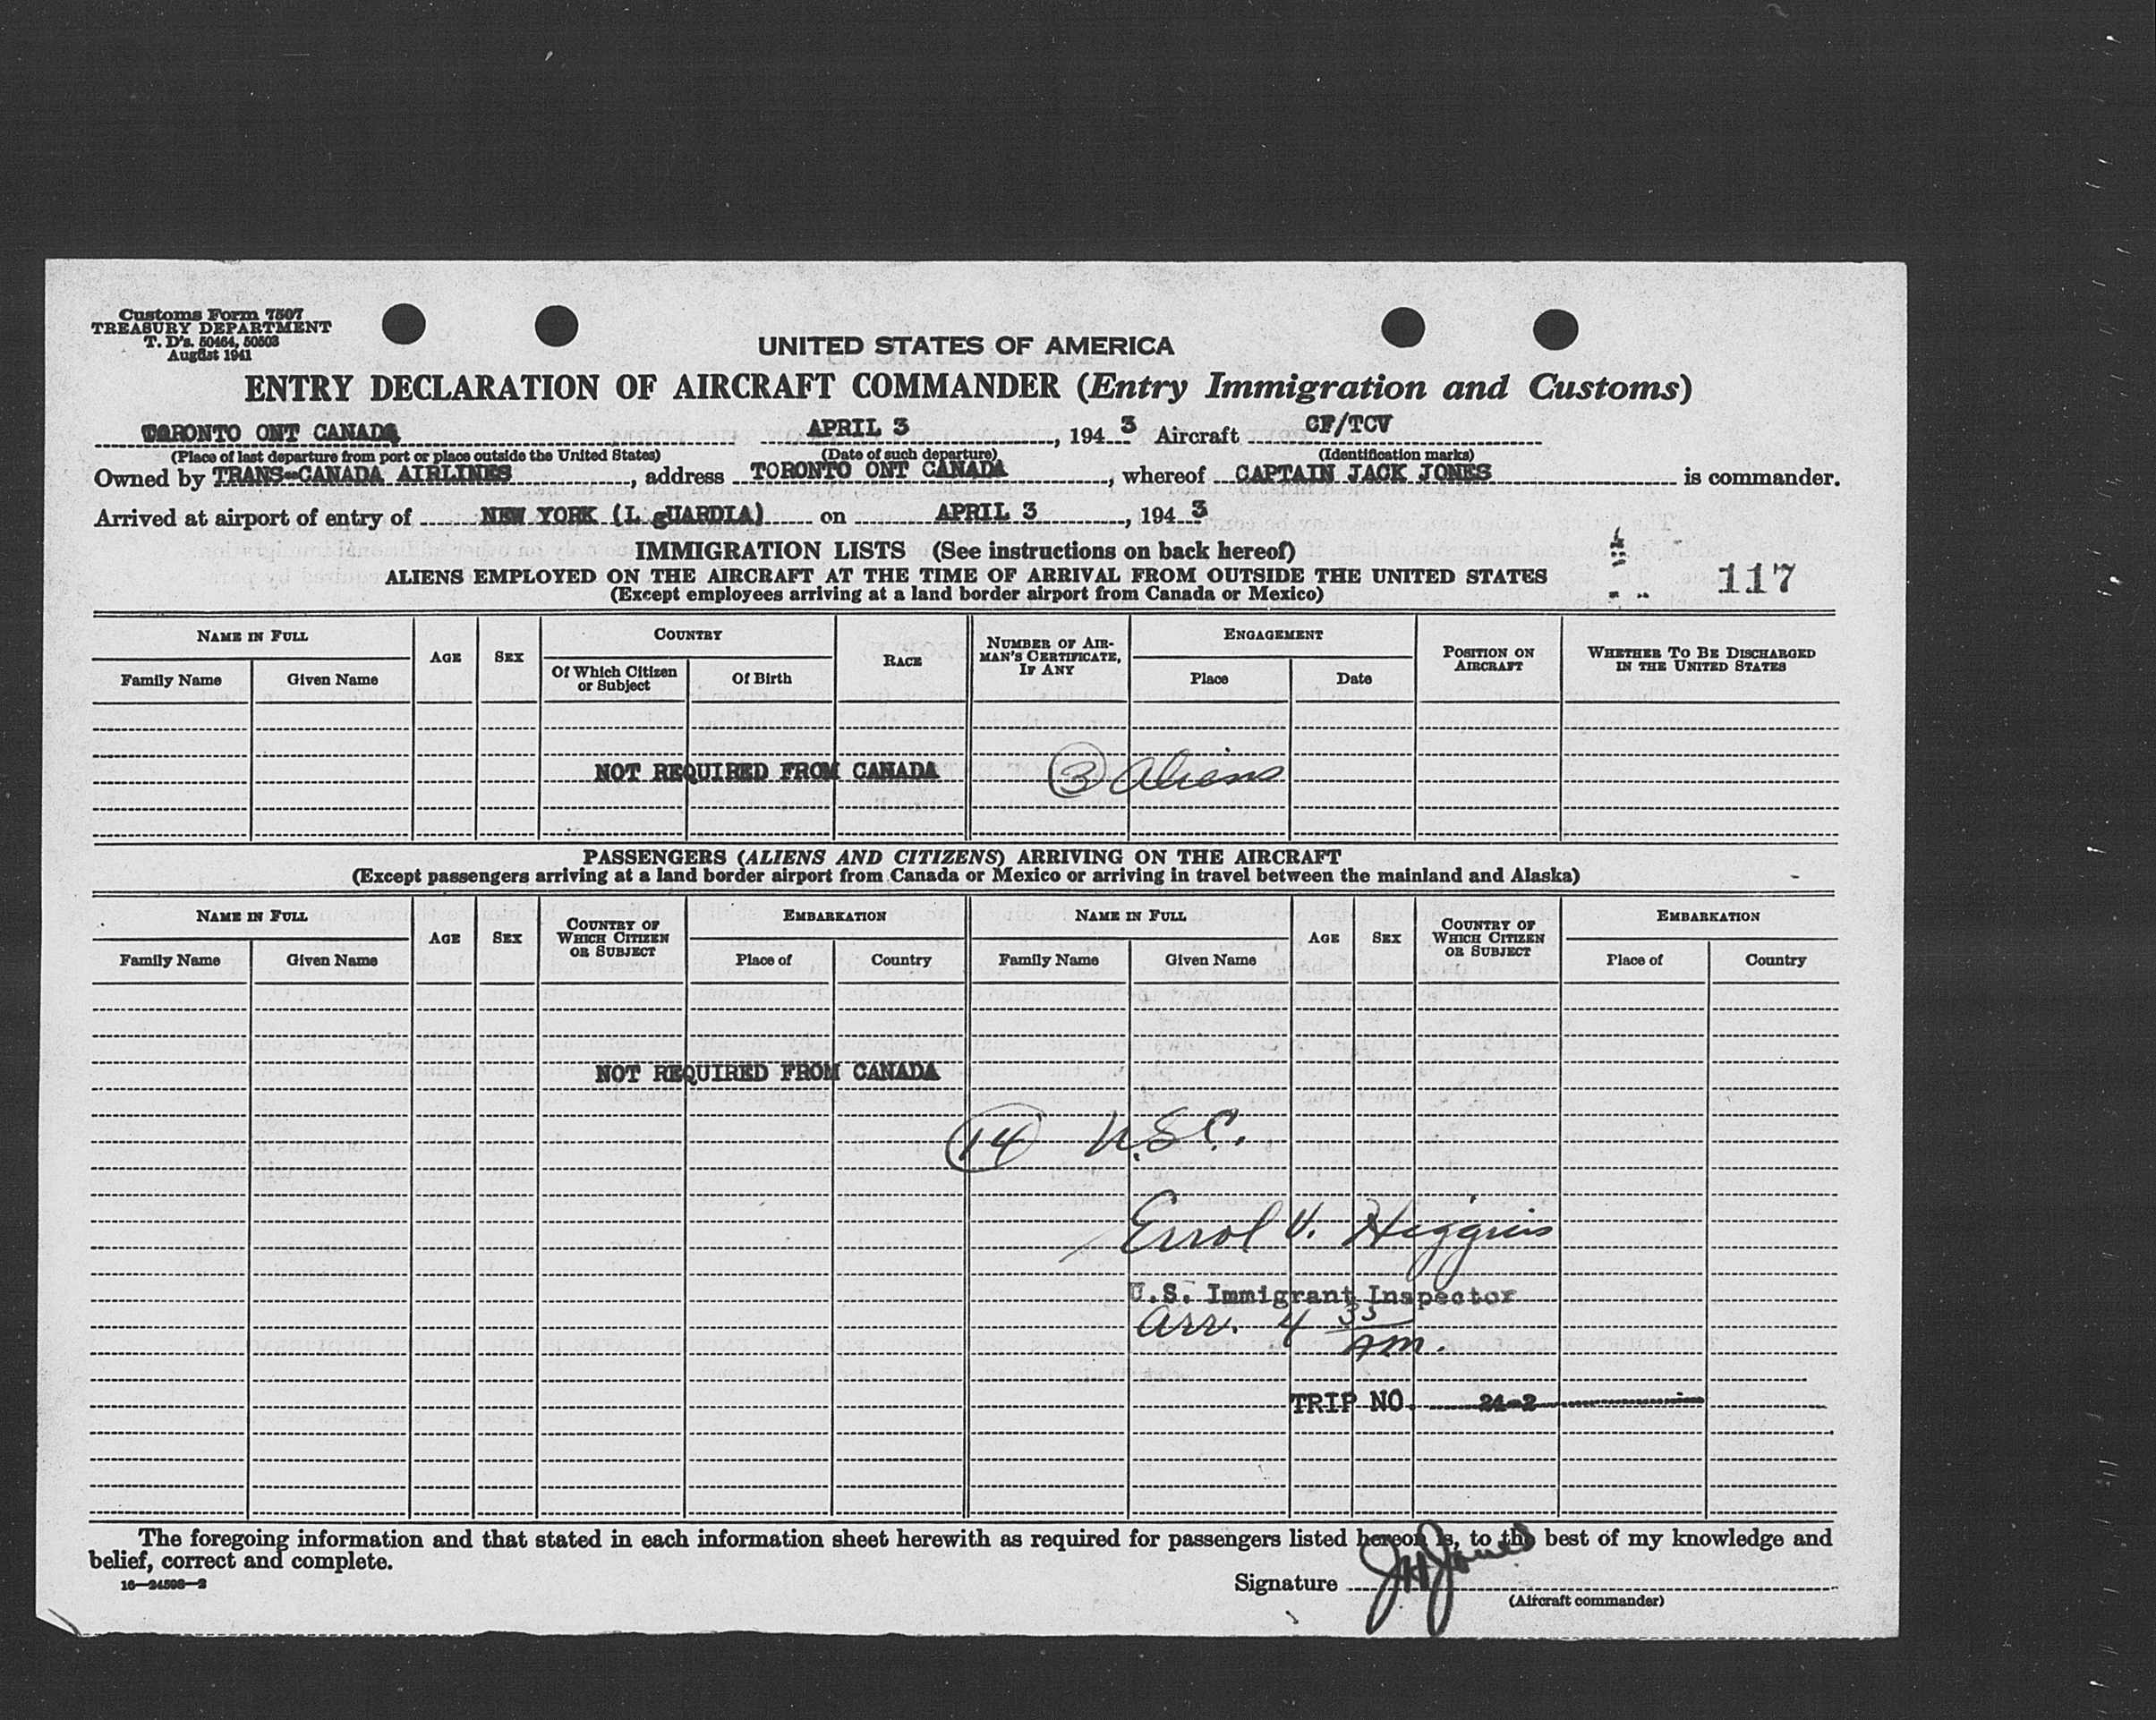 Customs Form 7507
TREASURY DEPARTMENT
T. D's. 50464, 50503
August 1941
UNITED STATES OF AMERICA
ENTRY DECLARATION OF AIRCRAFT COMMANDER (Entry Immigration and Customs)
TORONTO ONT CANADA APRIL 3, 1943 Aircraft CF/TCV
(Place of last departure from port or place outside the United States) (Date of such departure) (Identification marks)
Owned by TRANS-CANADA AIRLINES, address TORONTO ONT CANADA, whereof CAPTAIN JACK JONES is commander.
Arrived at airport of entry of NEW YORK (L gUARDIA) on APRIL 3, 1943
IMMIGRATION LISTS (See instructions on back hereof)
ALIENS EMPLOYED ON THE AIRCRAFT AT THE TIME OF ARRIVAL FROM OUTSIDE THE UNITED STATES
(Except employees arriving at a land border airport from Canada or Mexico)
117
NAME IN FULL AGE SEX COUNTRY RACE NUMBER OF AIRMAN'S CERTIFICATE, IF ANY ENGAGEMENT POSITION ON AIRCRAFT WHETHER TO BE DISCHARGED IN THE UNITED STATES
Family Name Given Name Of Which Citizen or Subject Of Birth Place Date
NOT REQUIRED FROM CANADA 3 Aliens
PASSENGERS (ALIENS AND CITIZENS) ARRIVING ON THE AIRCRAFT
(Except passengers arriving at a land border airport from Canada or Mexico or arriving in travel between the mainland and Alaska)
NAME IN FULL AGE SEX COUNTRY OF WHICH CITIZEN OR SUBJECT EMBARKATION NAME IN FULL AGE SEX COUNTRY OF WHICH CITIZEN OR SUBJECT EMBARKATION
Family Name Given Name Place of Country Family Name Given Name Place of Country
NOT REQUIRED FROM CANADA
14 U.S.C.
Errol V. Higgins
U.S. Immigrant Inspector
Arr. 4 35 AM.
TRIP NO. 21-2
The foregoing information and that stated in each information sheet herewith as required for passengers listed hereon is, to the best of my knowledge and
belief, correct and complete.
16—24598—2
Signature J H Jones
(Aircraft commander)